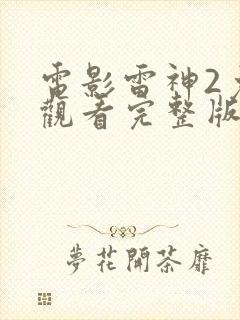 電影雷神2
觀看完整版
夢花開茶靡